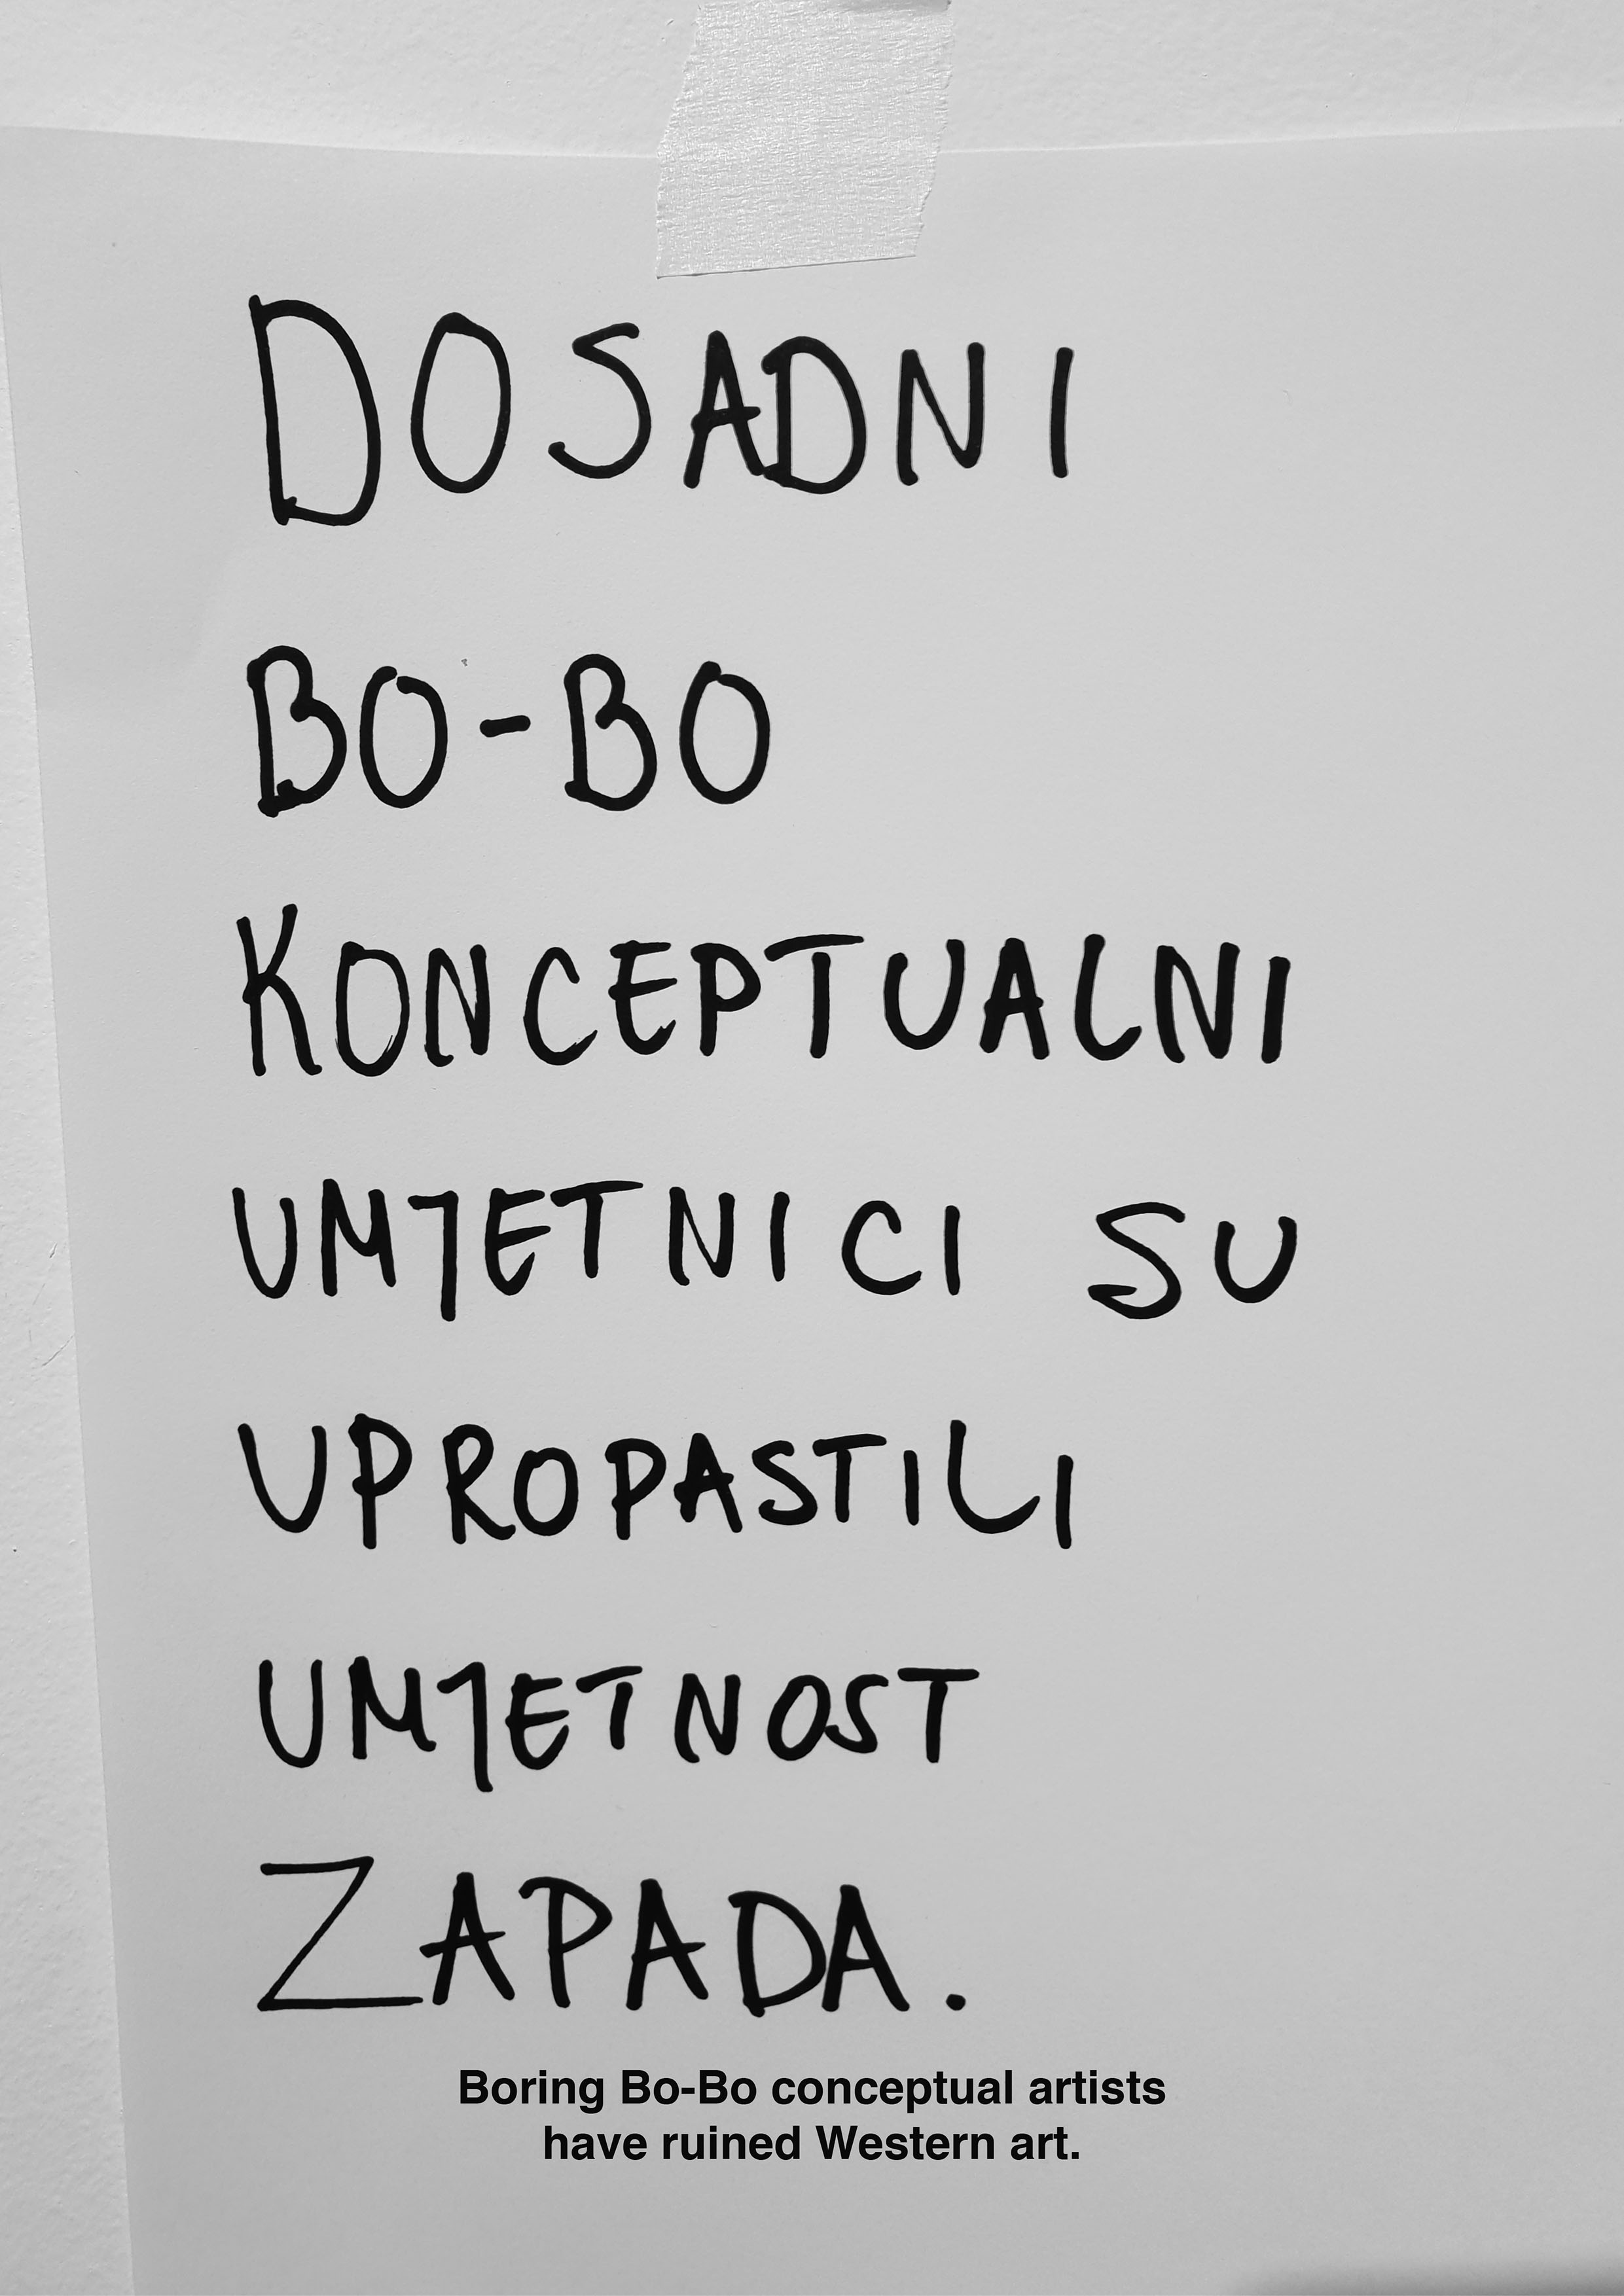 DOSADNI
BO-BO
KONCEPTUALNI
UMJETNICI SU
UPROPASTILI
UMJETNOST
ZAPADA.
Boring Bo-Bo conceptual artists
have ruined Western art.